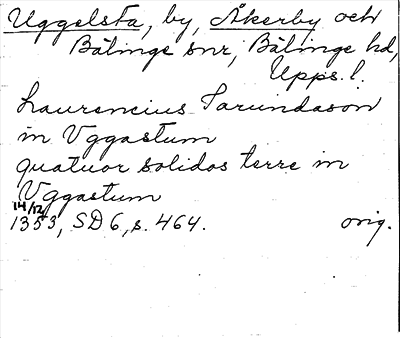 Uggelsta, by, Åkerby och
Bälinge snr, Bälinge hd,
Upps. l.
Laurencius Sarundason
in Vggastum
quatuor solidos terre in
Vggastum
14/12
1353, SD 6, s. 464. orig.